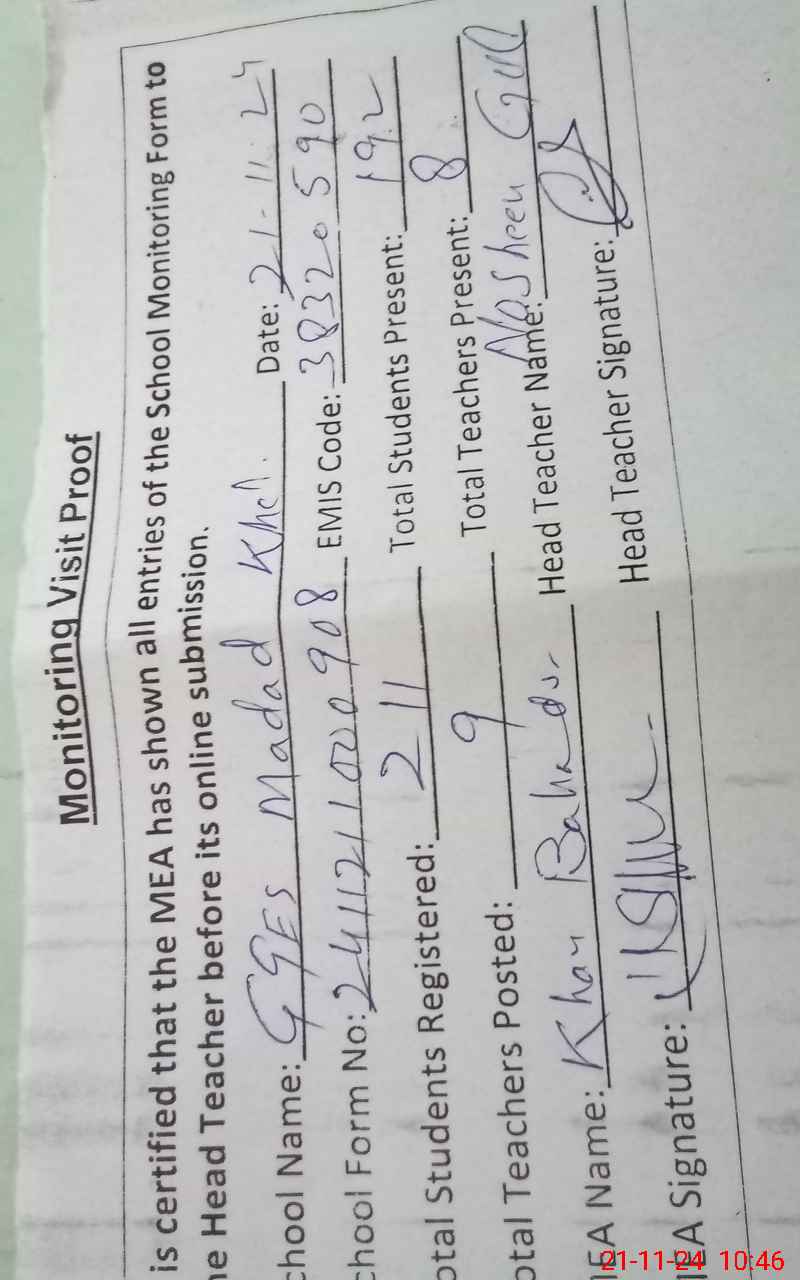 Monitoring Visit Proof
is certified that the MEA has shown all entries of the School Monitoring Form to
he Head Teacher before its online submission.
chool Name: GGES Madad Khel. Date: 21-11-24
chool Form No: 24112111000908 EMIS Code: 38320590
otal Students Registered: 211 Total Students Present: 192
otal Teachers Posted: 9 Total Teachers Present: 8
MEA Name: Khan Bahadur Head Teacher Name: Nosheen Gul
MEA Signature: Head Teacher Signature:
21-11-24 10:46